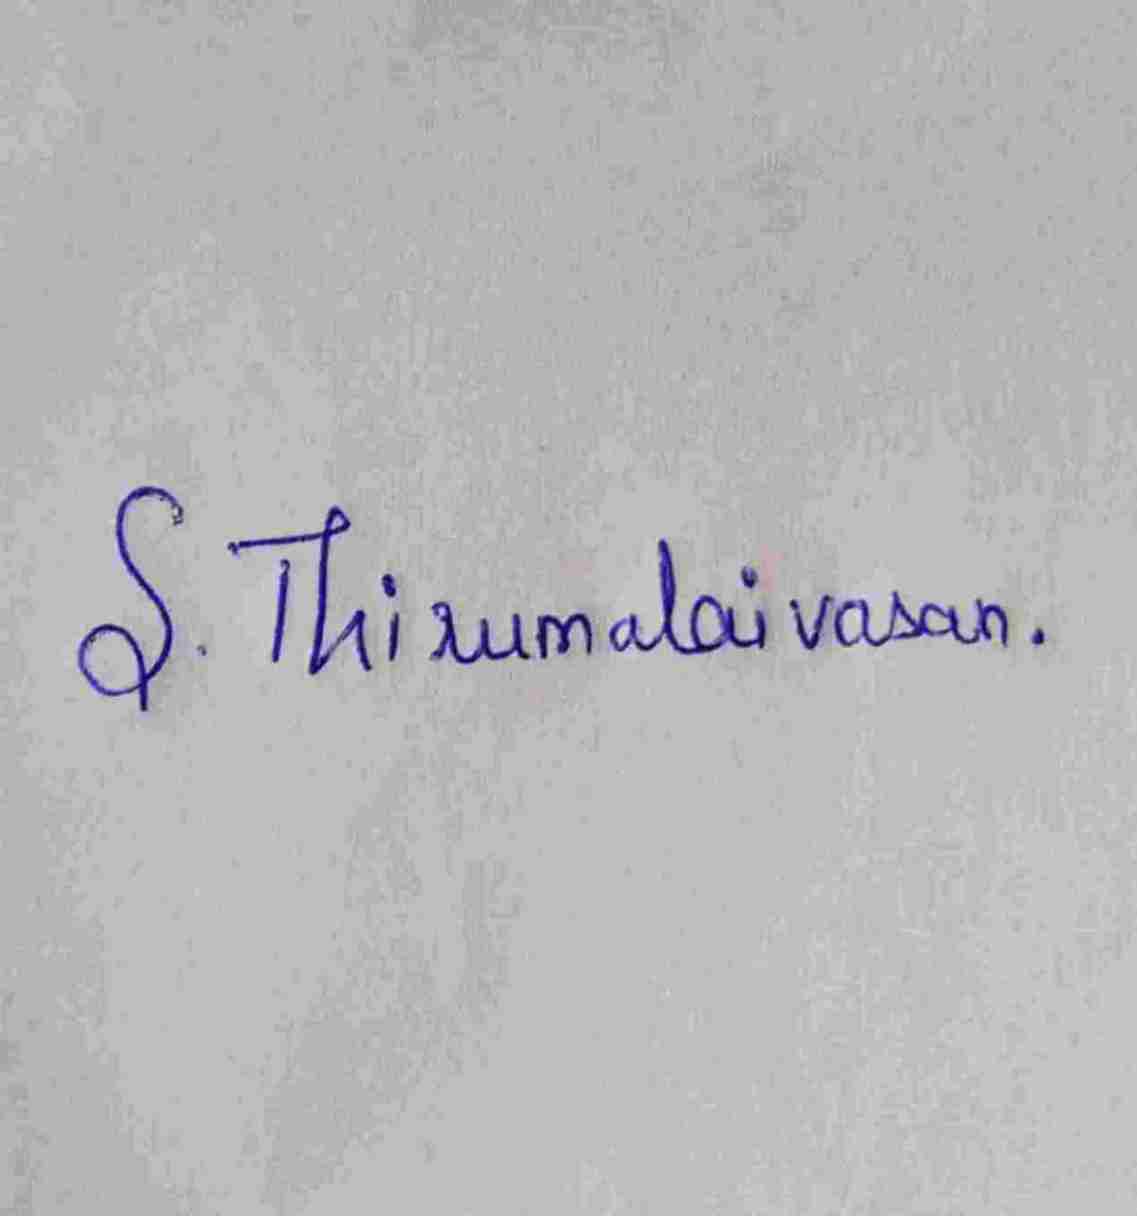 S. Thirumalaivasan.